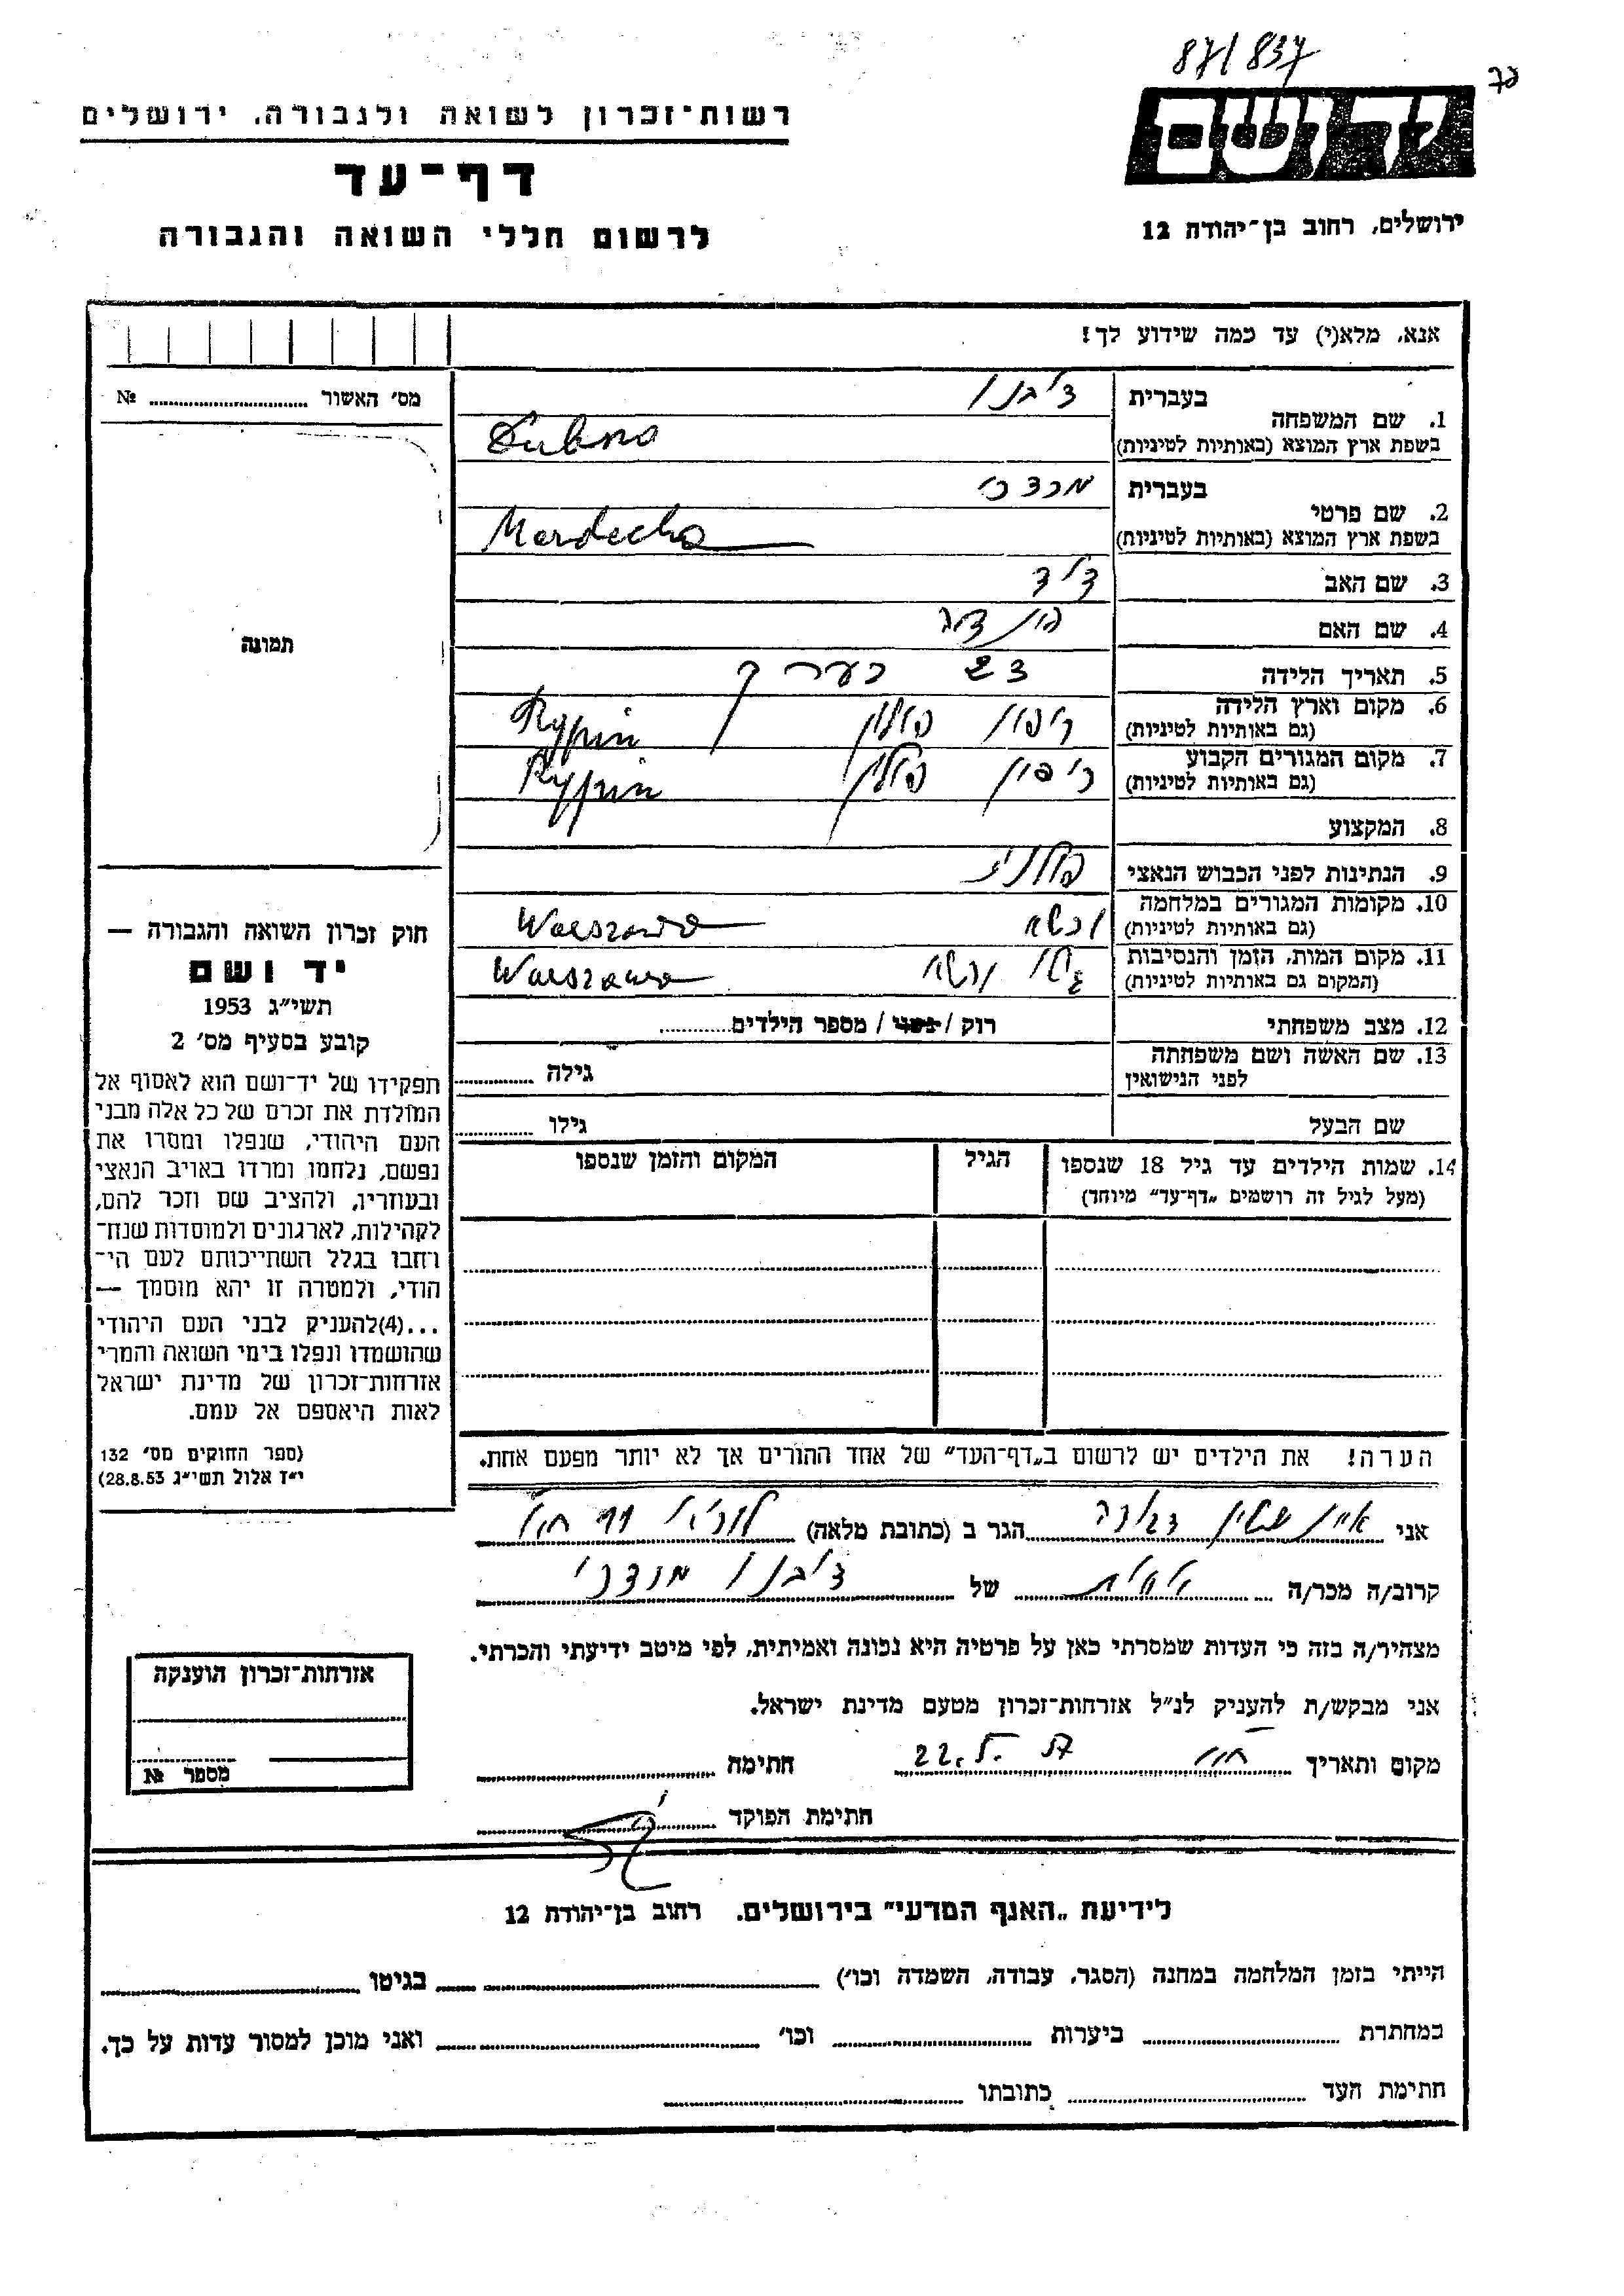 87/837
רשות־זכרון לשואה ולגבורה, ירושלים
ידושם
דף־עד
ירושלים, רחוב בן־יהודה 12
לרשום חללי השואה והגבורה
אנא, מלא(י) עד כמה שידוע לך!
מס׳ האשור № 
1. שם המשפחה
בעברית
דובנו
בשפת ארץ המוצא (באותיות לטיניות)
Dubno
2. שם פרטי
בעברית
מרדכי
בשפת ארץ המוצא (באותיות לטיניות)
Mordecha
3. שם האב דוד
4. שם האם הינדה
תמונה
5. תאריך הלידה 23 בערך
6. מקום וארץ הלידה ריפין פולין Rypin
(גם באותיות לטיניות)
7. מקום המגורים הקבוע ריפין פולין Rypin
(גם באותיות לטיניות)
8. המקצוע
9. הנתינות לפני הכבוש הנאצי פולנית
10. מקומות המגורים במלחמה ורשא Warszawa
(גם באותיות לטיניות)
11. מקום המות, הזמן והנסיבות גיטו ורשא Warszawa
(המקום גם באותיות לטיניות)
12. מצב משפחתי רוק / נשוי / מספר הילדים
13. שם האשה ושם משפחתה
לפני הנישואין
גילה
שם הבעל גילו
14. שמות הילדים עד גיל 18 שנספו
(מעל לגיל זה רושמים „דף־עד״ מיוחד)
הגיל
המקום והזמן שנספו
חוק זכרון השואה והגבורה —
יד ושם
תשי״ג 1953
קובע בסעיף מס׳ 2
תפקידו של יד־ושם הוא לאסוף אל
המולדת את זכרם של כל אלה מבני
העם היהודי, שנפלו ומסרו את
נפשם, נלחמו ומרדו באויב הנאצי
ובעוזריו, ולהציב שם וזכר להם,
לקהילות, לארגונים ולמוסדות שנח־
רחבו בגלל השתייכותם לעם הי־
הודי, ולמטרה זו יהא מוסמך —
...(4)להעניק לבני העם היהודי
שהושמדו ונפלו בימי השואה והמרי
אזרחות־זכרון של מדינת ישראל
לאות היאספם אל עמם.
(ספר החוקים מס׳ 132
י״ז אלול תשי״ג 28.8.53)
הערה! את הילדים יש לרשום ב„דף־העד״ של אחד ההורים אך לא יותר מפעם אחת.
אני דבורה הגר ב (כתובת מלאה)
קרוב/ה מכר/ה של דובנו מרדכי
מצהיר/ה בזה כי העדות שמסרתי כאן על פרטיה היא נכונה ואמיתית, לפי מיטב ידיעתי והכרתי.
אני מבקש/ת להעניק לנ״ל אזרחות־זכרון מטעם מדינת ישראל.
מקום ותאריך חתימה
חתימת הפוקד
אזרחות־זכרון הוענקה
מספר №
לידיעת „האגף המדעי״ בירושלים, רחוב בן־יהודה 12
הייתי בזמן המלחמה במחנה (הסגר, עבודה, השמדה וכו׳) בגיטו
במחתרת ביערות וכו׳ ואני מוכן למסור עדות על כך.
חתימת העד כתובתו